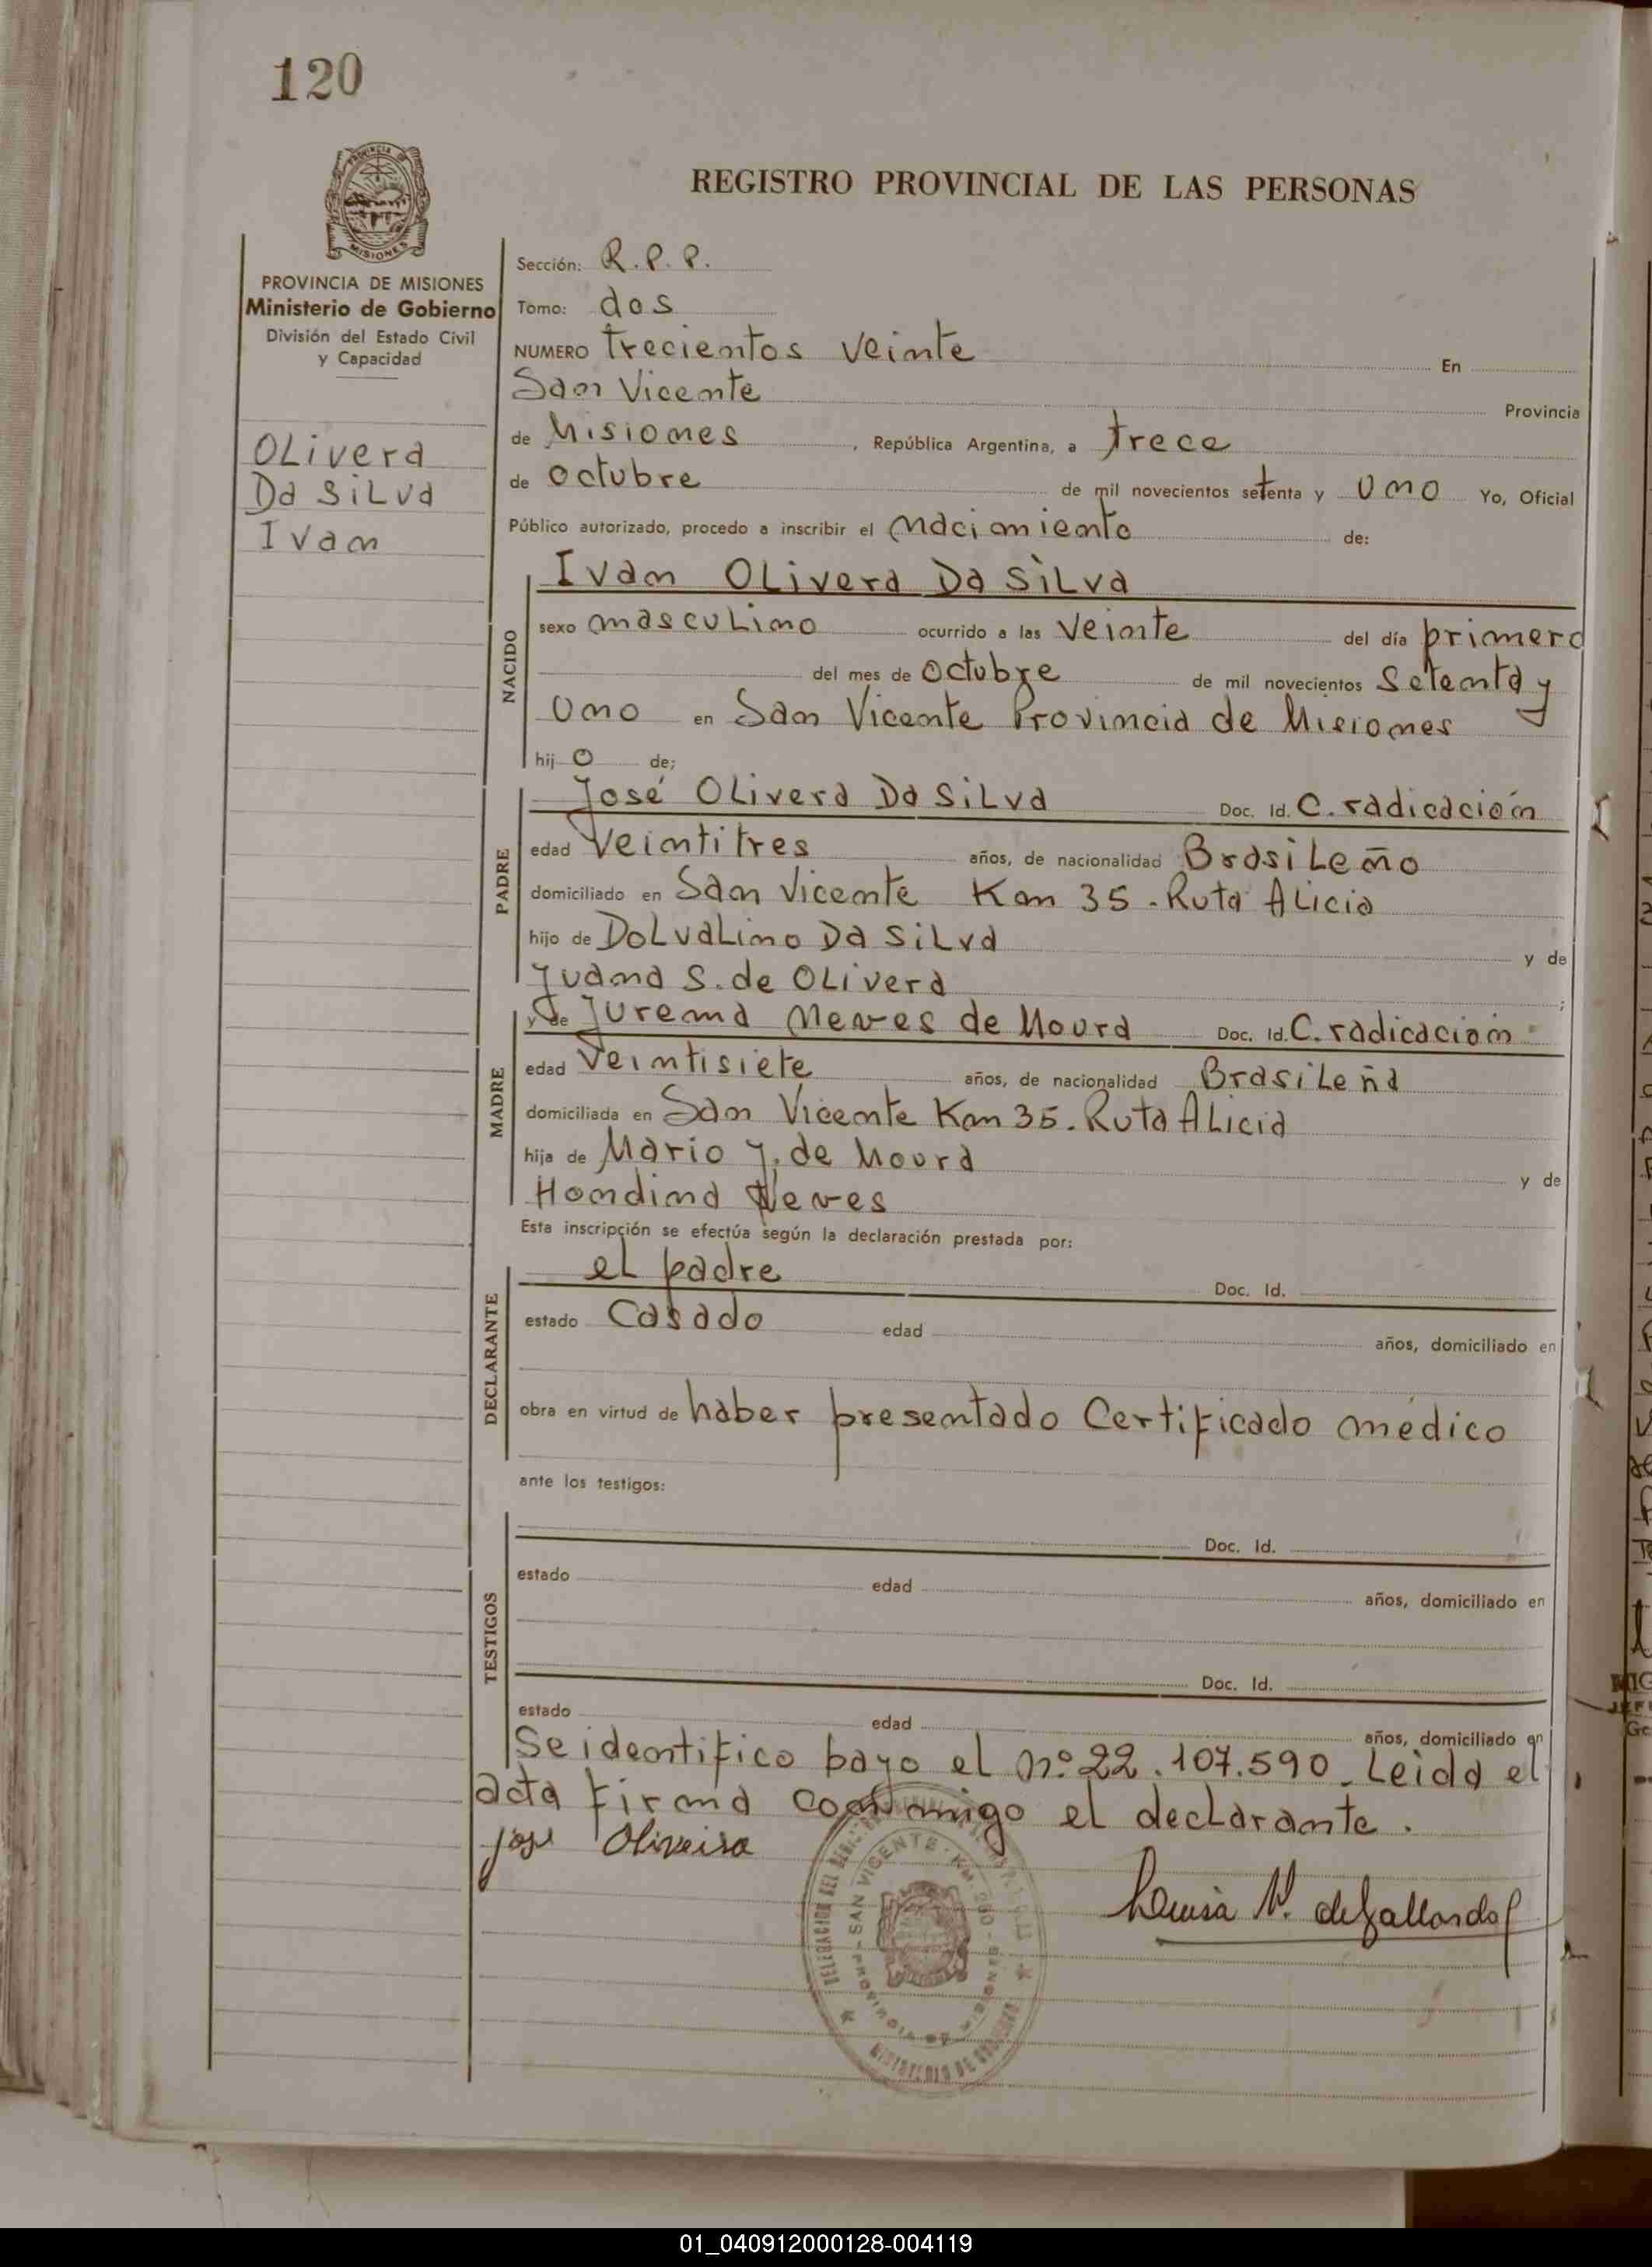 120
REGISTRO PROVINCIAL DE LAS PERSONAS
PROVINCIA DE MISIONES
Ministerio de Gobierno
División del Estado Civil
y Capacidad
Olivera
Da Silva
Ivan
Sección: R.P.P.
Tomo: dos
NUMERO trecientos veinte En
San Vicente Provincia
de Misiones, República Argentina, a trece
de octubre de mil novecientos setenta y uno Yo, Oficial
Público autorizado, procedo a inscribir el nacimiento de:
NACIDO
Ivan Olivera Da Silva
sexo masculino ocurrido a las veinte del día primero
del mes de octubre de mil novecientos setenta y
uno en San Vicente Provincia de Misiones
hijo de;
PADRE
José Olivera Da Silva Doc. Id. C. radicación
edad veintitres años, de nacionalidad Brasileño
domiciliado en San Vicente Km 35. Ruta Alicia
hijo de Dolvalino Da Silva y de
Juana S. de Olivera;
MADRE
y de Jurema Neves de Moura Doc. Id. C. radicación
edad veintisiete años, de nacionalidad Brasileña
domiciliada en San Vicente Km 35. Ruta Alicia
hija de Mario J. de Moura y de
Hondina Neves
Esta inscripción se efectúa según la declaración prestada por:
DECLARANTE
el padre Doc. Id.
estado Casado edad años, domiciliado en
obra en virtud de haber presentado Certificado médico
ante los testigos:
TESTIGOS
Doc. Id.
estado edad años, domiciliado en
Doc. Id.
estado edad años, domiciliado en
Se identifico bajo el nº 22.107.590. Leida el
acta firma conmigo el declarante.
José Oliveira
SAN VICENTE - KM. 260 - PROVINCIA DE MISIONES
MINISTERIO DE GOBIERNO
de Gallardo
01_040912000128-004119